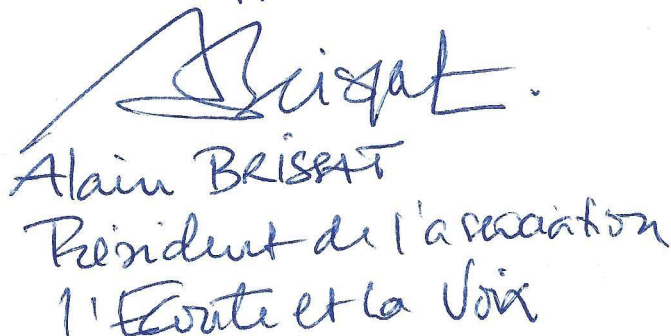 ABrissat.
Alain BRISSAT
Président de l'association
l'Ecoute et la Voix